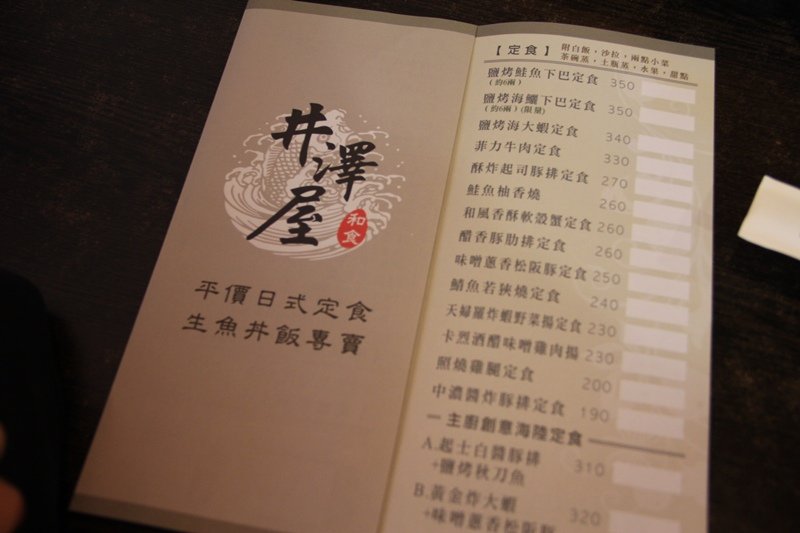 井澤屋
和食
平價日式定食
生魚丼飯專賣
【定食】 附白飯，沙拉，兩點小菜
茶碗蒸，土瓶蒸，水果，甜點
鹽烤鮭魚下巴定食 350
(約6兩)
鹽烤海鱺下巴定食 350
(約6兩)(限量)
鹽烤海大蝦定食 340
菲力牛肉定食 330
酥炸起司豚排定食 270
鮭魚柚香燒 260
和風香酥軟殼蟹定食 260
醋香豚肋排定食 260
味噌蔥香松阪豚定食 250
鯖魚若狹燒定食 240
天婦羅炸蝦野菜揚定食 230
卡烈酒醋味噌雞肉揚 230
照燒雞腿定食 200
中濃醬炸豚排定食 190
主廚創意海陸定食
A.起士白醬豚排
+鹽烤秋刀魚 310
B.黃金炸大蝦
+味噌蔥香松阪豚 320